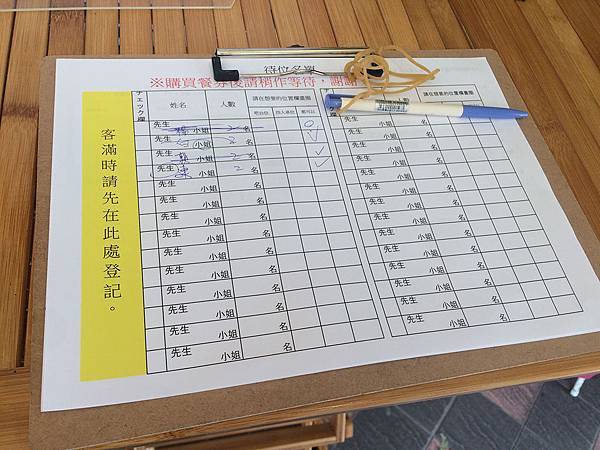 待位名單
※購買餐券後請稍作等待，謝謝
客滿時請先在此處登記。
チェック欄 姓名 人數 請在想坐的位置欄畫圈
吧台位 四人桌位 都可以
先生 小姐 2 名 ○
先生 小姐 2 名 ✓
先生 小姐 2 名 ✓
先生 小姐 2 名 ✓
先生 小姐 名
先生 小姐 名
先生 小姐 名
先生 小姐 名
先生 小姐 名
先生 小姐 名
先生 小姐 名
先生 小姐 名
請在想坐的位置欄畫圈
先生 小姐 名
先生 小姐 名
先生 小姐 名
先生 小姐 名
先生 小姐 名
先生 小姐 名
先生 小姐 名
先生 小姐 名
先生 小姐 名
先生 小姐 名
先生 小姐 名
先生 小姐 名